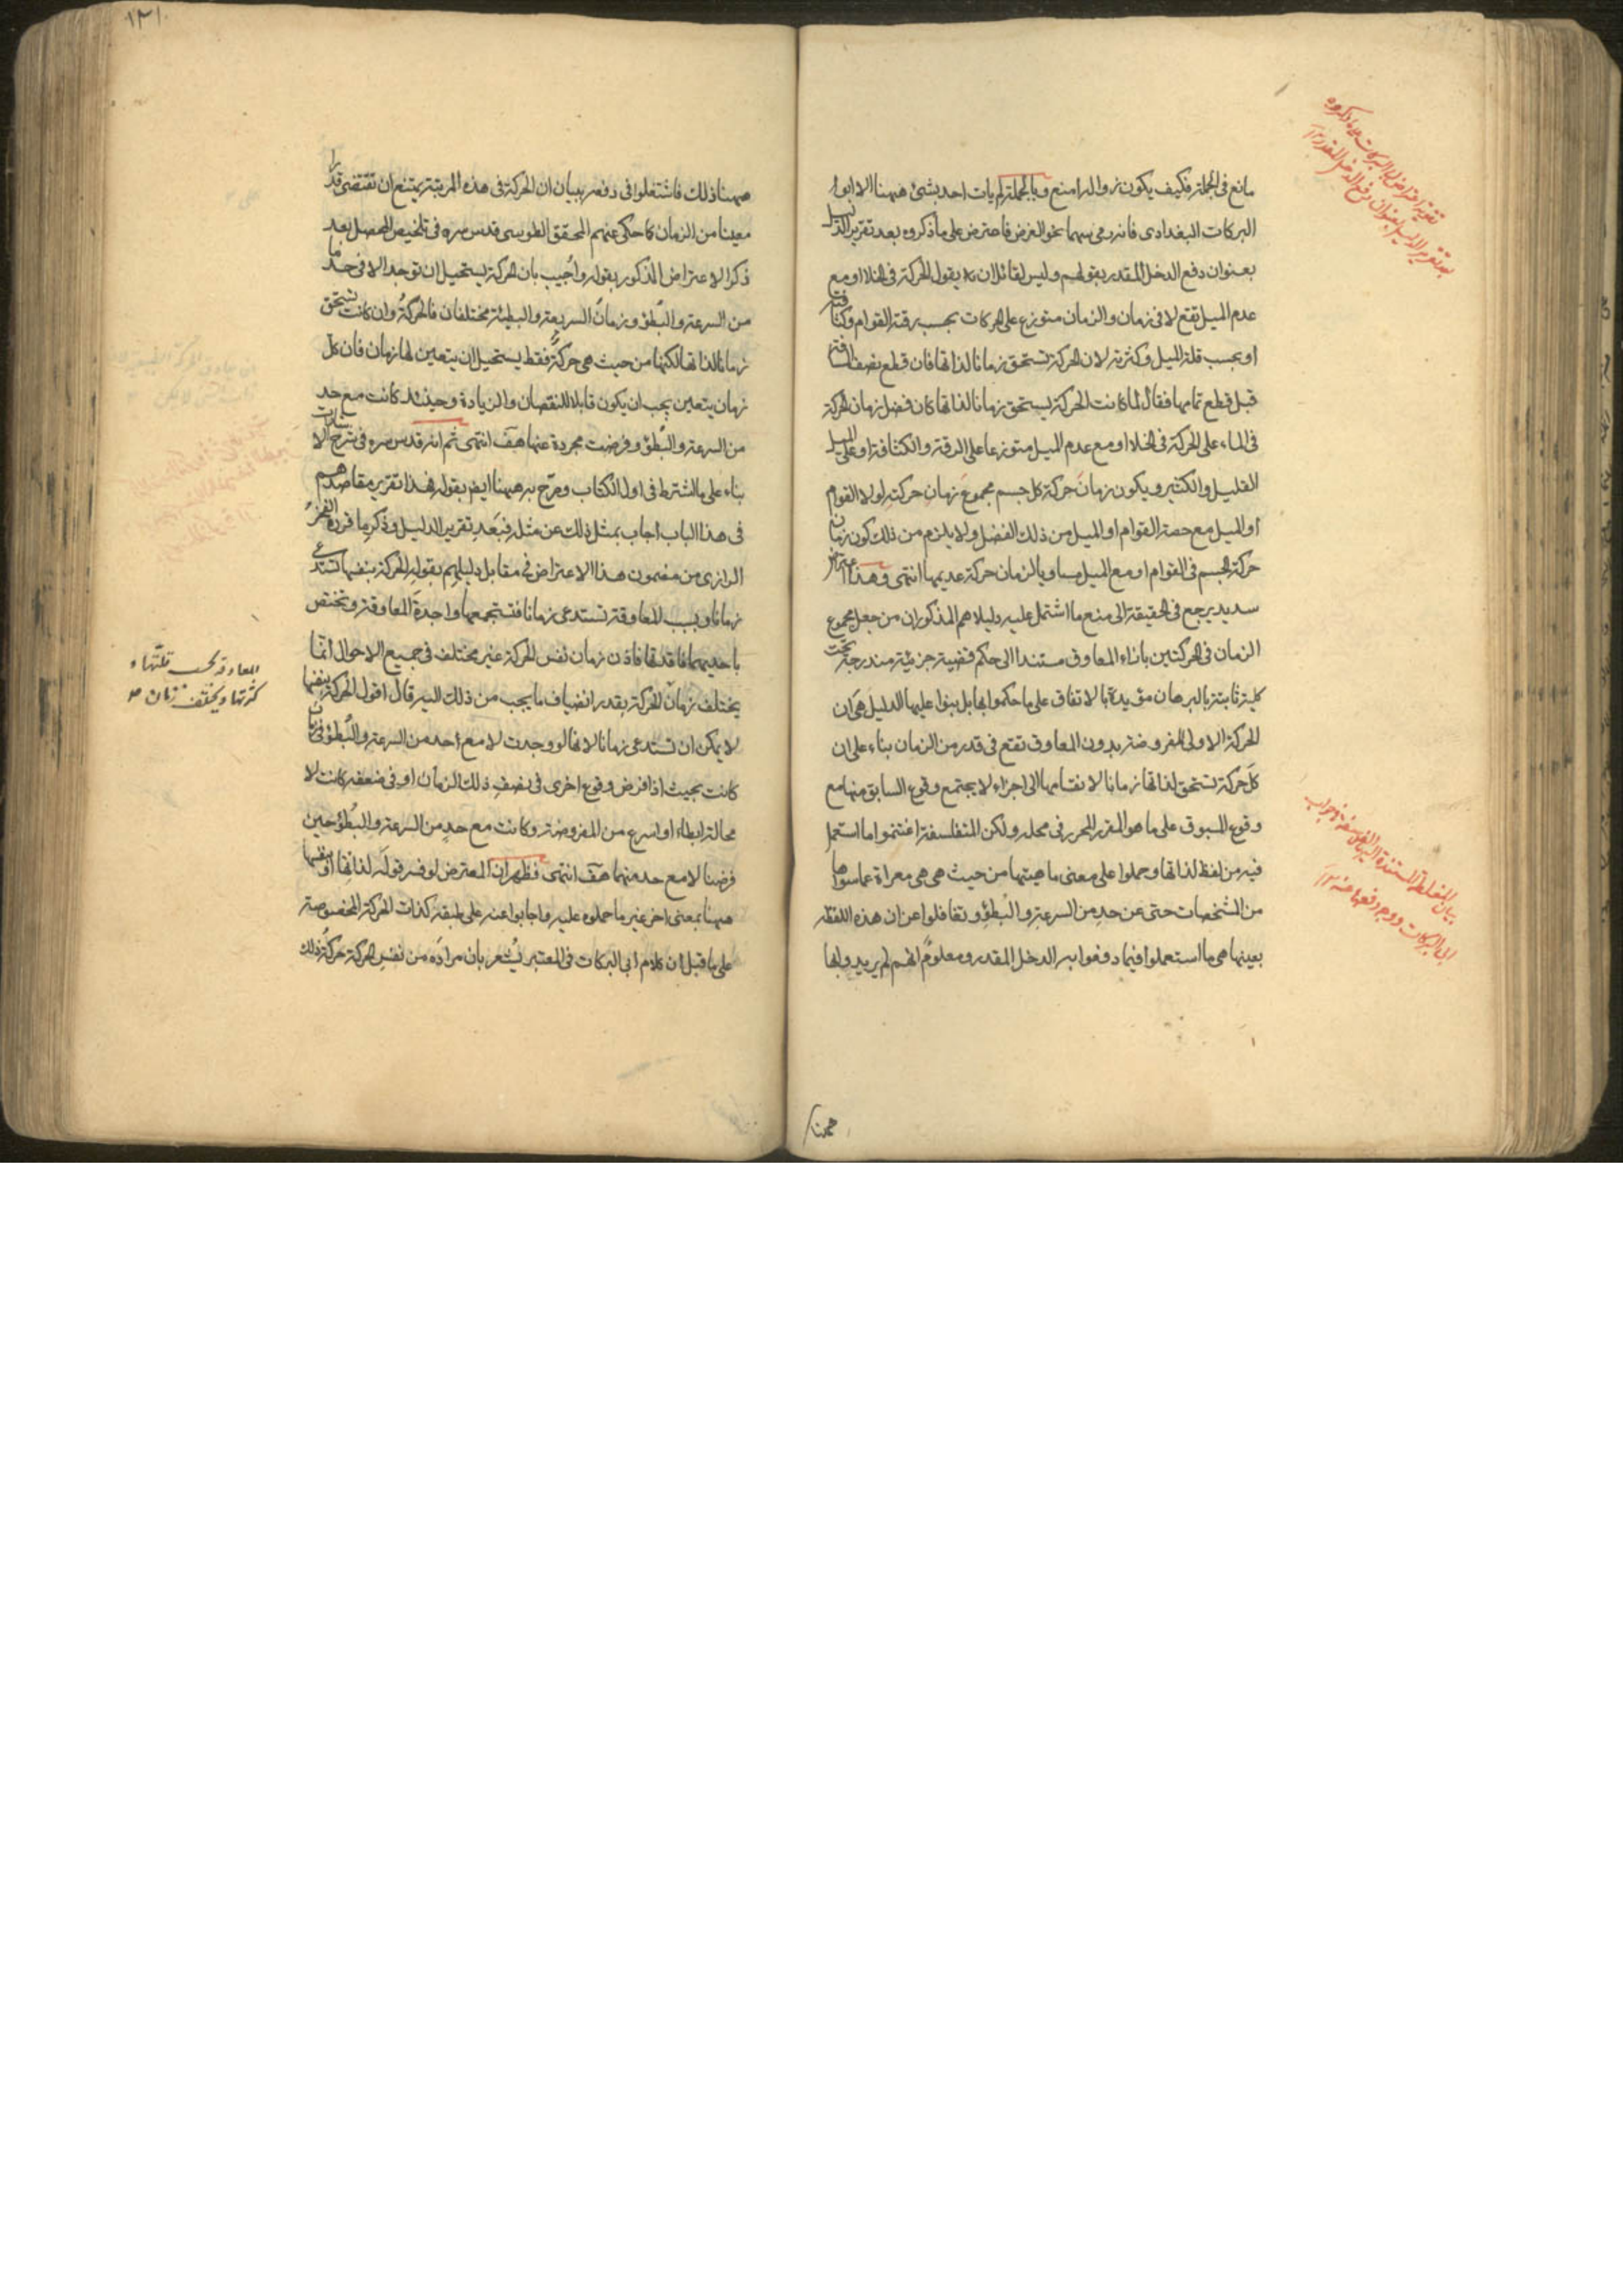 مانع فى الجملة فكيف يكون زوال المرامنع وبالجملة لم يات احد بشئ ههنا الا ابو
البركات البغدادى فانه رمى سهما نحو الغرض فاعترض على ما ذكروه بعد تقرير الدليل
بعنوان دفع الدخل المقدر بقولهم وليس لقائل ان يقول الحركة فى الخلا او مع
عدم الميل تقع لا فى زمان والزمان متوزع على الحركات بحسب رقة القوام وكثافته
او بحسب قلة الميل وكثرته لان الحركة تستحق زمانا لذاتها فان قطع نصف المسافة
قبل قطع تمامها فقال لما كانت الحركة تستحق زمانا لذاتها كان فضل زمان الحركة
فى الماء على الحركة فى الخلا او مع عدم الميل متوزعا على الرقة والكثافة او على الميل
القليل والكثير ويكون زمان حركة كل جسم مجموع زمان حركته لولا القوام
او الميل مع حصة القوام او الميل من ذلك الفضل ولا يلزم من ذلك كون زمان
حركة الجسم فى القوام او مع الميل مساويا لزمان حركة عديمها انتهى وهذا اعتراض
سديد يرجع فى الحقيقة الى منع ما اشتمل عليه دليلاهم المذكوران من جعل مجموع
الزمان فى الحركتين بازاء المعاوق مستندا الى حكم قضية جزئية مندرجة تحت
كلية ثابتة بالبرهان مؤيدة بالاتفاق على ما حكموا بها بل بنوا عليها الدليل هى ان
الحركة الاولى المفروضة بدون المعاوق تقع فى قدر من الزمان بناء على ان
كل حركة تستحق لذاتها زمانا لانقسامها الى اجزاء لا يجتمع وقوع السابق منها مع
وقوع المسبوق على ما هو المقرر المحرر فى محله ولكن المتفلسفة اغتنموا ما استعمل
فيه من لفظ لذاتها وحملوا على معنى ماهيتها من حيث هى هى معراة عما سواها
من المشخصات حتى عن حد من السرعة والبطؤ وتغافلوا عن ان هذه اللفظة
بعينها هى ما استعملوا فيما دفعوا به الدخل المقدر ومعلوم انهم لم يريدوا بها
ههنا
تقوية اعتراض ابى البركات على ما ذكروه
بعد تقرير الدليل بعنوان دفع الدخل المقدر
بيان المغلطة المستندة الى المتفلسفة فى جواب
ابى البركات ووجه دفعها عنه
١٣١
ههنا ذلك فاشتغلوا فى دفعه ببيان ان الحركة فى هذه المرتبة يمتنع ان تقتضى قدرا
معينا من الزمان كما حكى عنهم المحقق الطوسى قدس سره فى تلخيص المحصل بعد
ذكر الاعتراض المذكور بقوله واجيب بان الحركة يستحيل ان توجد الا فى حد ما
من السرعة والبطؤ وزمان السريعة والبطيئة مختلفان فالحركة وان كانت تستحق
زمانا لذاتها لكنها من حيث هى حركة فقط يستحيل ان يتعين لها زمان فان كل
زمان يتعين يجب ان يكون قابلا للنقصان والزيادة وحينئذ كانت مع حد
من السرعة والبطؤ وفرضت مجردة عنها هف انتهى ثم انه قدس سره فى شرح الاشارات
بناء على ما اشترط فى اول الكتاب وصرح به ههنا ايضا بقوله فهذا تقرير مقاصدهم
فى هذا الباب اجاب بمثل ذلك عن مثله فبعد تقرير الدليل وذكر ما قرره الفخر
الرازى من مضمون هذا الاعتراض فى مقابل دليلهم بقوله الحركة بنفسها تستدعى
زمانا وبسبب المعاوقة تستدعى زمانا فتستجمعهما واجدة المعاوقة وتختص
باحديهما فاقدتها فاذن زمان نفس الحركة غير مختلف فى جميع الاحوال انما
يختلف زمان الحركة بقدر انضياف ما يجب من ذلك اليه قال اقول الحركة بنفسها
لا يمكن ان تستدعى زمانا لانها لو وجدت لا مع احد من السرعة والبطؤ فى زمان
كانت بحيث اذا فرض وقوع اخرى فى نصف ذلك الزمان او فى ضعفه كانت لا
محالة ابطاء او اسرع من المفروضة وكانت مع حد من السرعة والبطؤ حين
فرضنا لا مع حد منهما هف انتهى فظهر ان المعترض لو فسر قوله لذاتها او بنفسها
ههنا بمعنى اخر غير ما حملوه عليه واجابوا عنه على طبقه كذات الحركة المخصوصة
على ما قيل ان كلام ابى البركات فى المعتبر يشعر بان مراده من نفس الحركة حركة ذلك
المعاوقة بحسب قلتها و
كثرتها ويختلف زمان